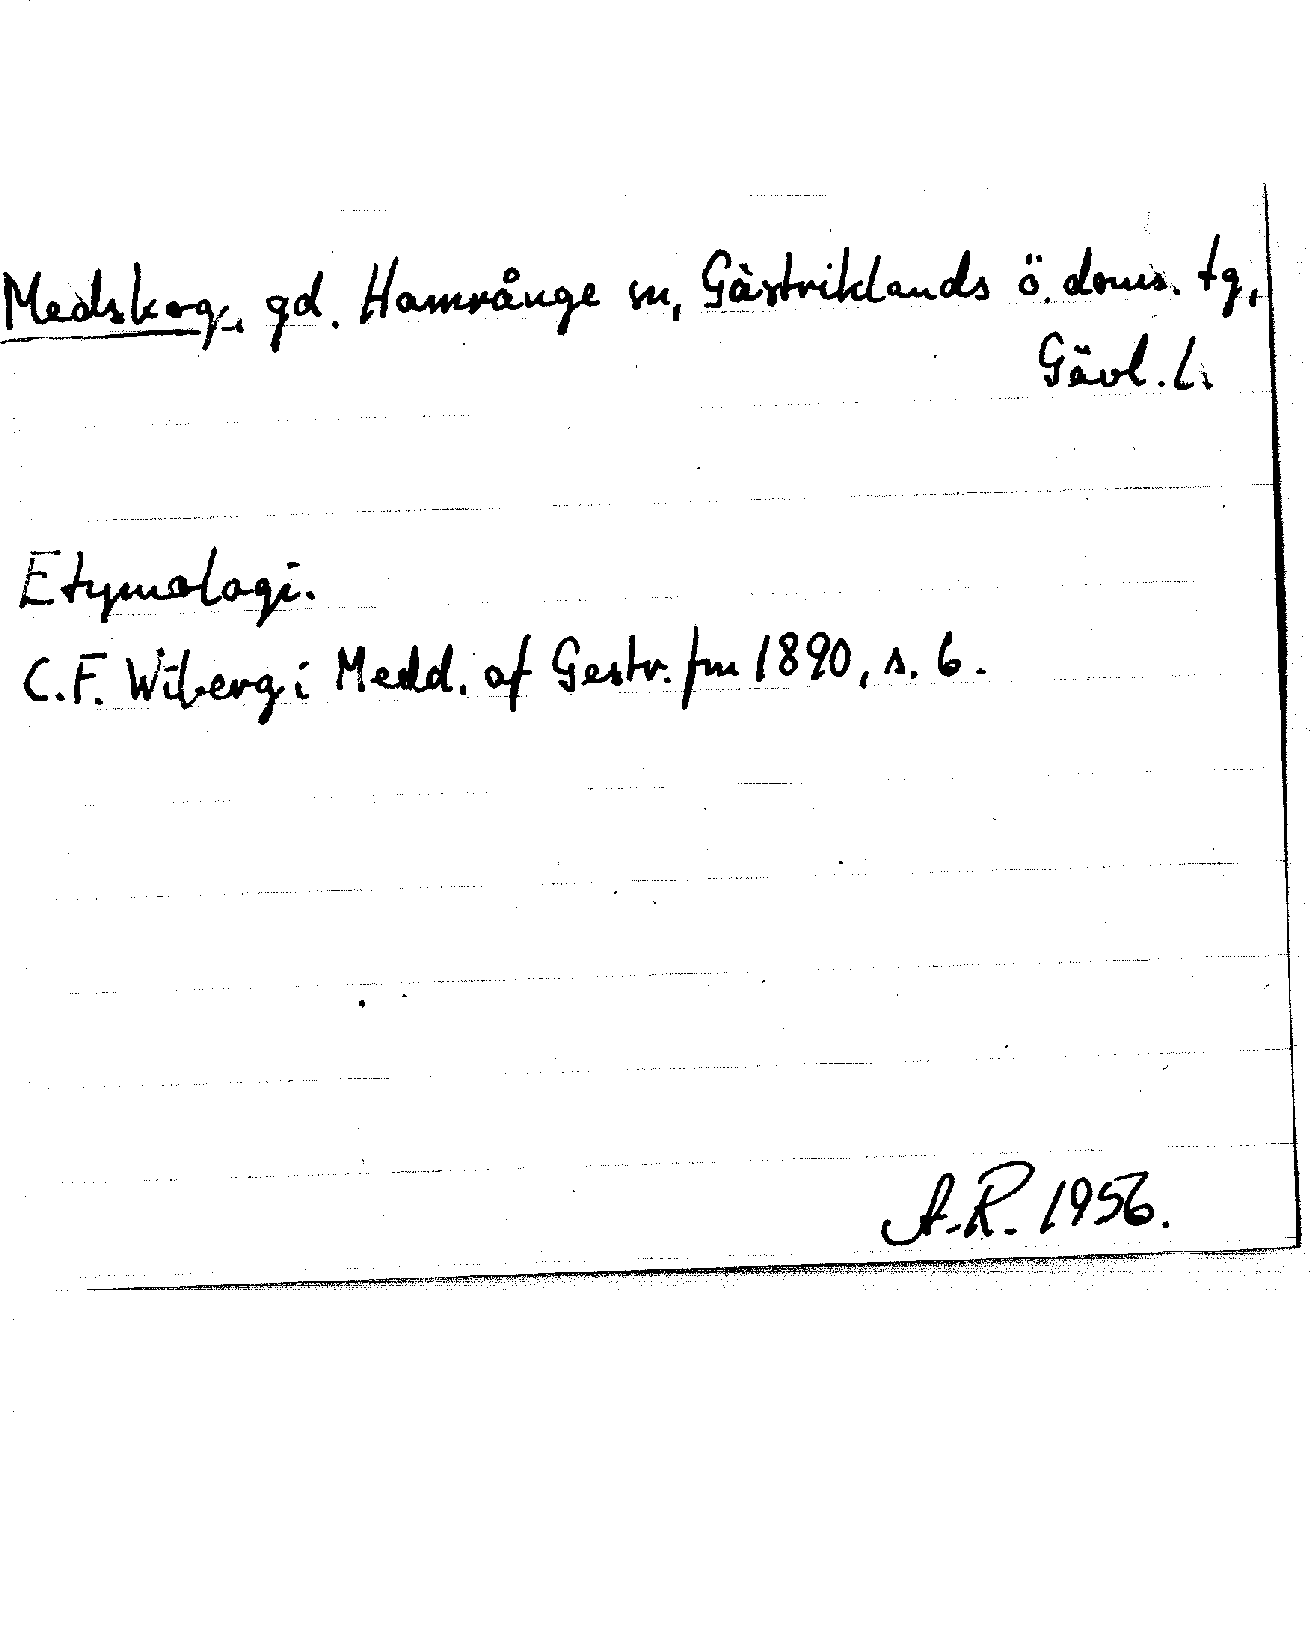 Medskog, gd. Hamrånge sn, Gästriklands ö. doms. tg,
Gävl. l.
Etymologi.
C.F. Wiberg i Medd. af Gestr. fm 1890, s. 6.
A.R. 1956.